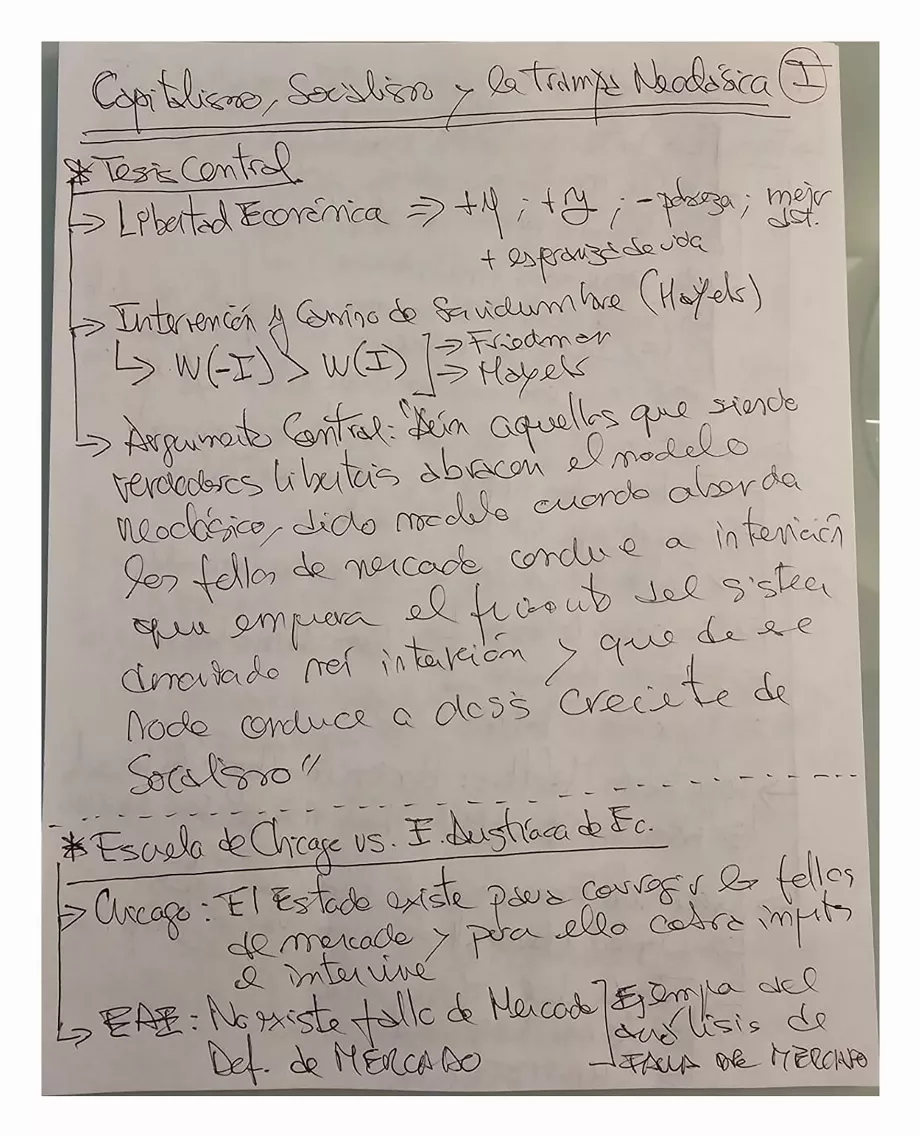 Capitalismo, Socialismo y la Trampa Neoclásica I
* Tesis Central
→ Libertad Económica ⇒ +y ; +ẏ ; -pobreza ; mejor dist.
+ esperanza de vida
→ Intervención y Camino de Servidumbre (Hayek)
↳ W(-I) > W(I) ] → Friedman
→ Hayek
→ Argumento Central: "Aún aquellos que siendo
verdaderos libertarios abrazan el modelo
neoclásico, dicho modelo cuando aborda
los fallos de mercado conduce a intervención
que empeora el del sistema
más intervención y que de ese
modo conduce a dosis creciente de
Socialismo"
* Escuela de Chicago vs. E. Austríaca de Ec.
→ Chicago: El Estado existe para corregir los fallos
de mercado y para ello cobra impuestos
e interviene
↳ EAE: No existe fallo de Mercado ] Ejemplo del
Def. de MERCADO
análisis de
FALLA DE MERCADO